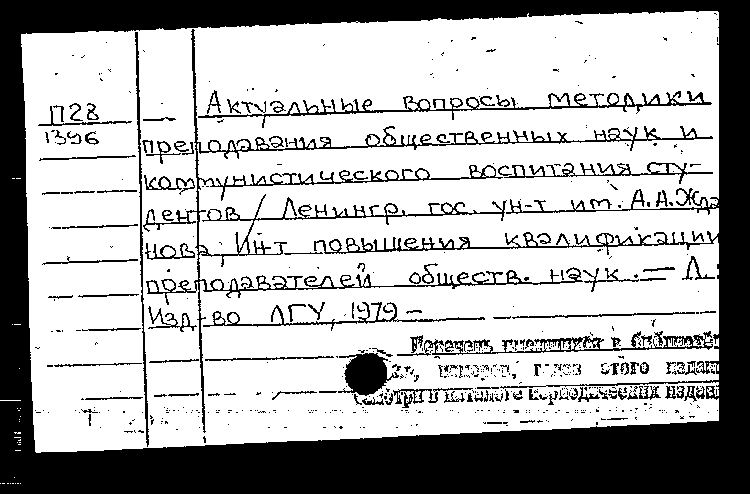 П28
1396
— Актуальные вопросы методики
преподавания общественных наук и
коммунистического воспитания сту-
дентов / Ленингр. гос. ун-т им. А.А.Жда
нова, Ин-т повышения квалификации
преподавателей обществ. наук. — Л.:
Изд-во ЛГУ, 1979 —
Перечень имеющихся в библиотек
номеров, годов этого издан
смотри в каталоге периодических издан